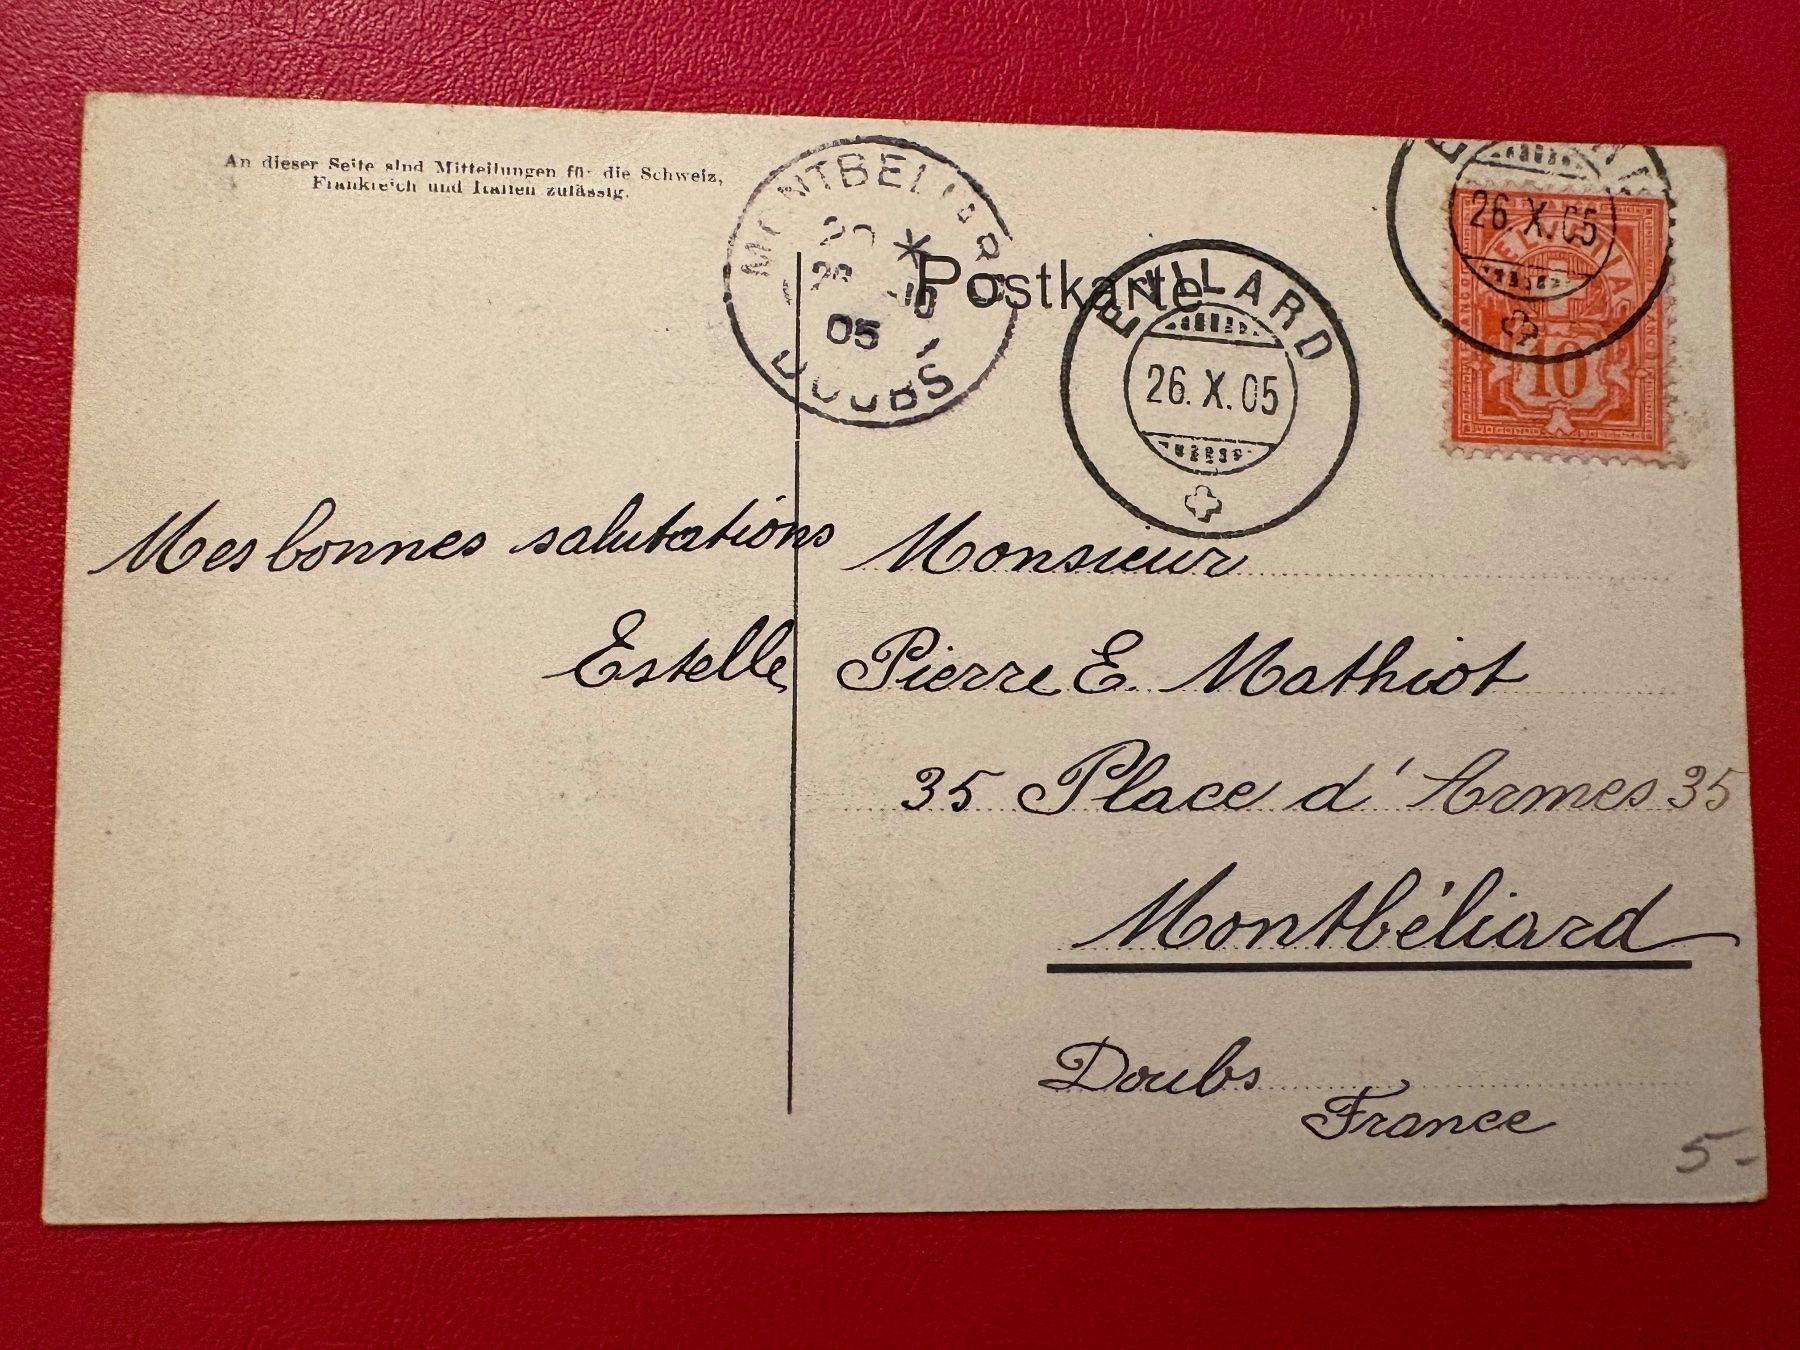 An dieser Seite sind Mitteilungen für die Schweiz,
Frankreich und Italien zulässig.
MONTBELIARD
26 10
05
DOUBS
Postkarte
EVILARD
26. X. 05
26. X. 05
HELVETIA
FRANCO FRANCO
10
Mes bonnes salutations
Estelle
Monsieur
Pierre E. Mathiot
35 Place d'Armes 35
Montbéliard
Doubs
France
5-